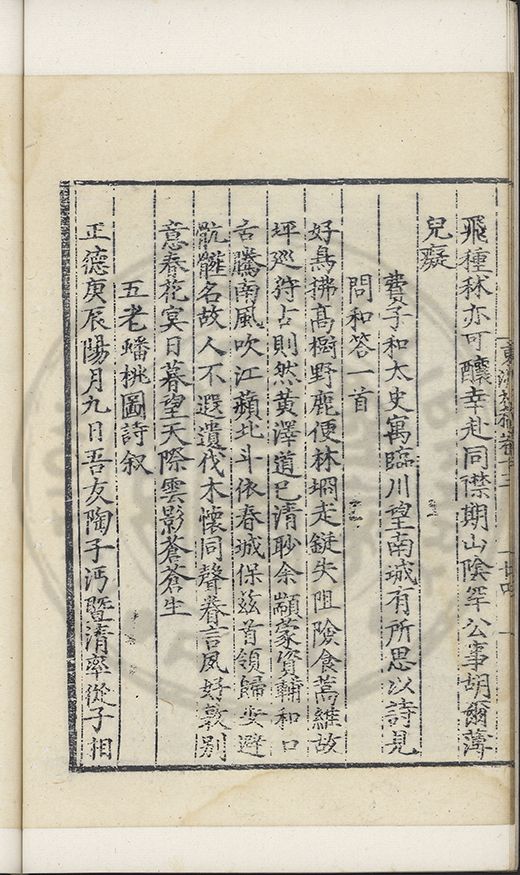 飛種秫亦可釀幸赴同襟期山陰罕公事胡爾薄
兒癡
費子和太史寓臨川望南城有所思以詩見
問和答一首
好鳥拂高樹野鹿便林坰走鋌失阻險食蒿維故
坪巡狩占則然黃澤道已清眇余顓蒙資輔和口
舌騰南風吹江蘋北斗依春城保茲首領歸安避
骯髒名故人不遐遺伐木懷同聲眷言夙好敦別
意春花冥日暮望天際雲影蒼蒼生
五老蟠桃圖詩叙
正德庚辰陽月九日吾友陶子沔暨清率從子相